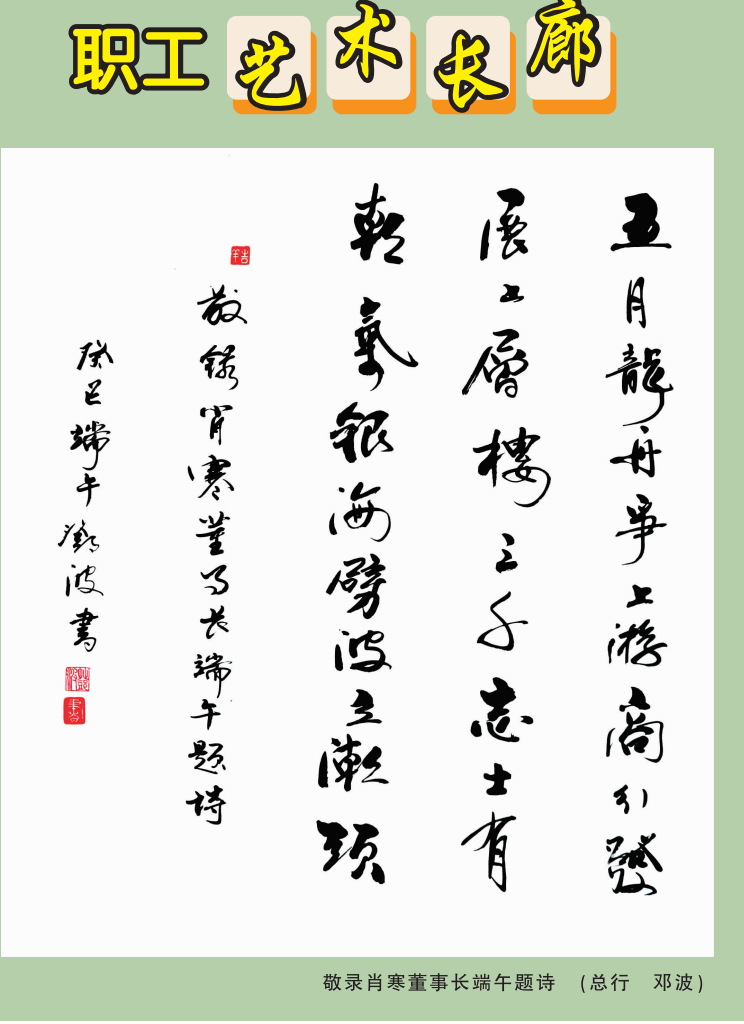 职工艺术长廊
五月龍舟爭上游商行發
展上層樓三千志士有
朝氣銀海劈波立潮頭
敬錄肖寒董事长端午題詩
癸巳端午鄧波書
敬录肖寒董事长端午题诗 (总行 邓波)